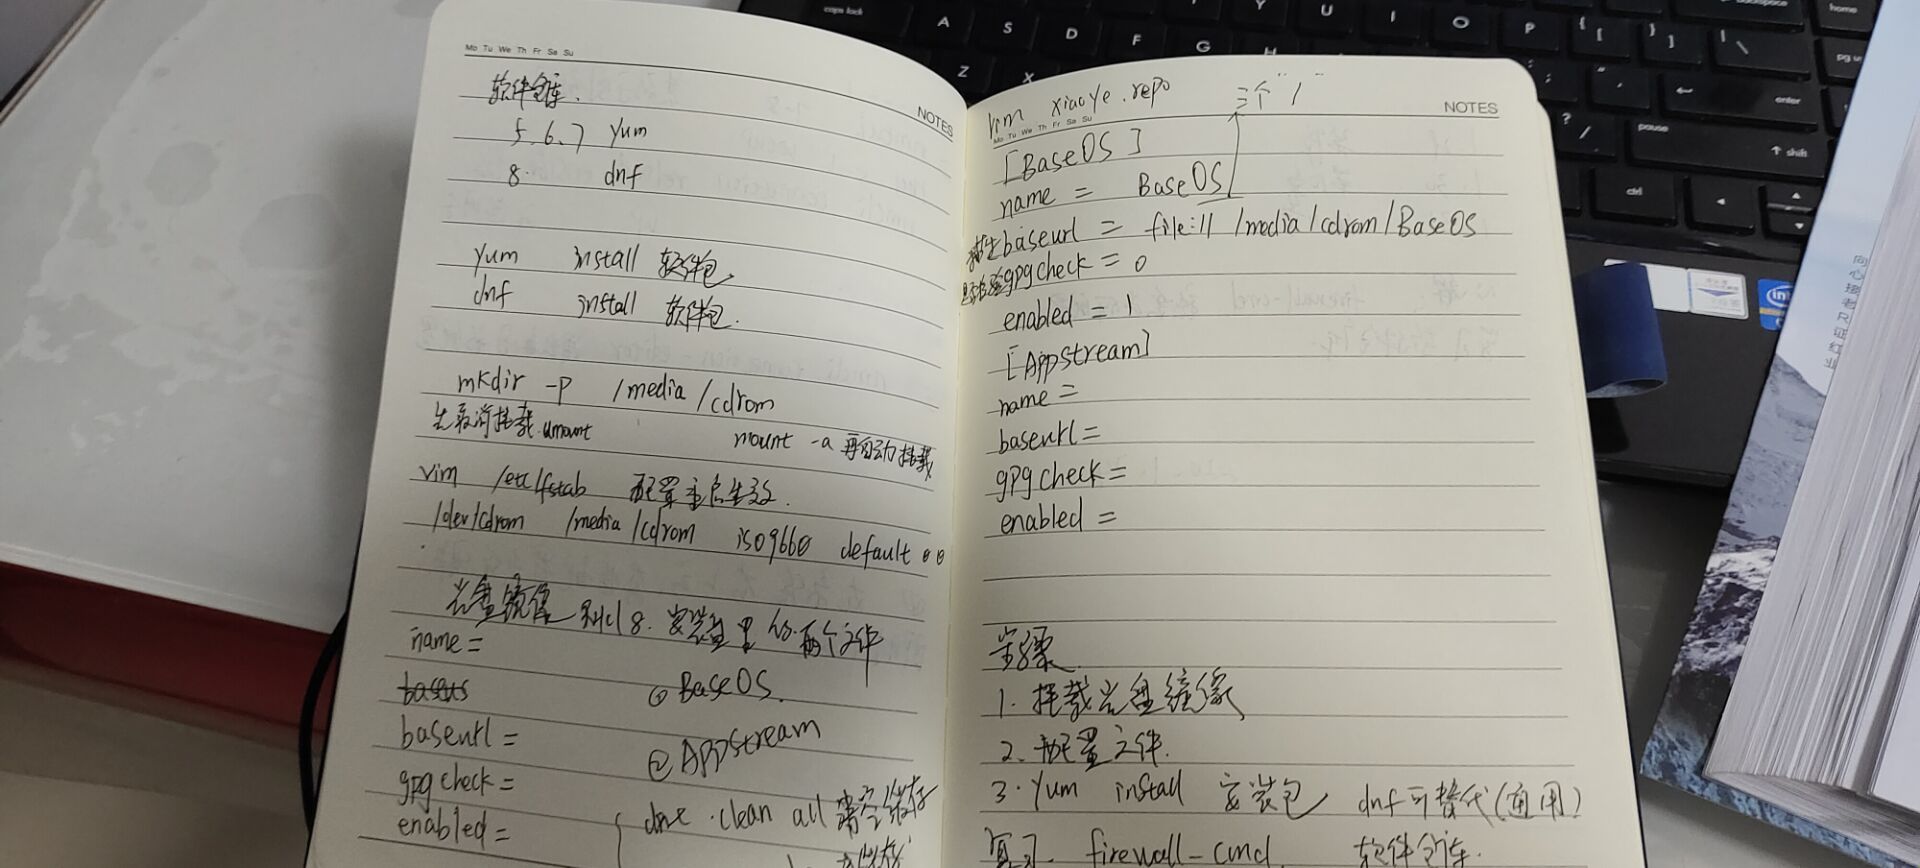 Mo Tu We Th Fr Sa Su
NOTES
软件仓库.
5.6.7 yum
8. dnf
yum install 软件包
dnf install 软件包.
mkdir -p /media/cdrom
先取消挂载.umount mount -a 再自动挂载
vim /etc/fstab 配置重启生效.
/dev/cdrom /media/cdrom iso9660 default 0 0
光盘镜像 8. 安装盘里 两个文件
name =
baseurl =
gpgcheck =
enabled =
① BaseOS.
② AppStream
clean all 清空缓存
vim xiaoye.repo
三个"/"
Mo Tu We Th Fr Sa Su
NOTES
[BaseOS]
name = BaseOS
baseurl = file:// /media/cdrom/BaseOS
gpgcheck = 0
enabled = 1
[Appstream]
name =
baseurl =
gpgcheck =
enabled =
步骤
1. 挂载光盘镜像
2. 配置文件.
3. yum install 安装包 dnf可替代(通用)
复习. firewall-cmd. 软件仓库.
caps lock
A
S
D
F
G
H
Z
X
Y
U
I
O
P
home
enter
pause
shift
ctrl
pg up
intel